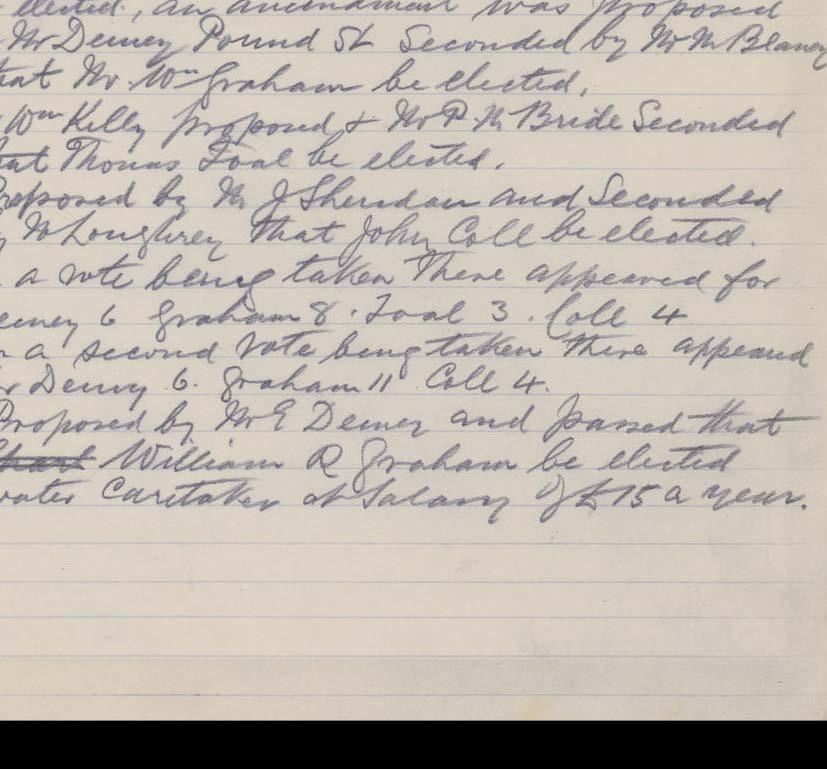 elected, an amendment was proposed
Mr Demey Pound St Seconded by Mr M Blaney
that Mr. Wm Graham be elected,
Wm Kelly proposed & Mr P Mc Bride Seconded
that Thomas Toal be elected.
Proposed by Mr J Sheridan and Seconded
Mc Loughrey that John Coll be elected.
a vote being taken There appeared for
emey 6 Graham 8. Toal 3. Coll 4
a second vote being taken there appeard
Demy 6. Graham 11 Coll 4.
Proposed by Mr E Demey and passed that
William R Graham be elected
water Caretaker at Salary of £15 a year.